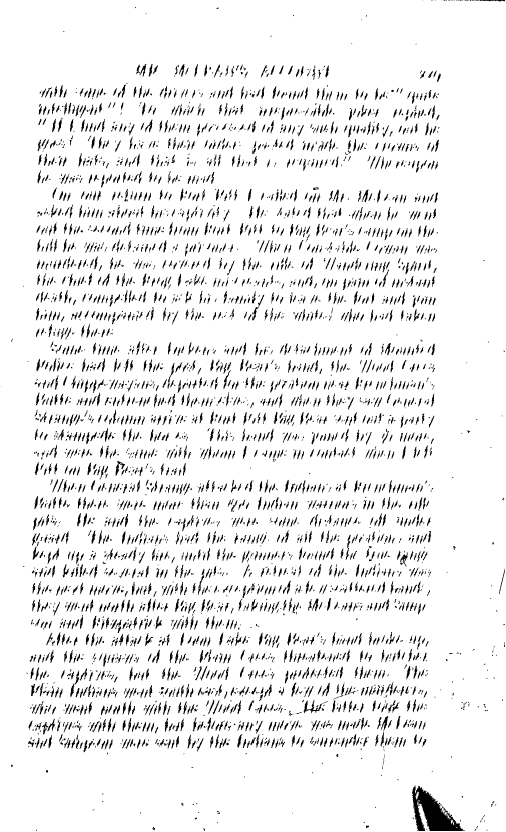 MR. McLEAN'S ACCOUNT
with some of the drivers and had found them to be "quite
intelligent"! To which that irrepressible joker replied,
"If I find any of them possessed of any such quality, out he
goes! They have their orders posted inside the crowns of
their hats, and that is all that is required." Whereupon
he was reputed to be mad.
On our return to Fort Pitt I called on Mr. McLean and
asked him about his captivity. He stated that when he went
out the second time from Fort Pitt to Big Bear's camp on the
hill he was detained a prisoner. When Constable Cowan was
murdered, he was covered by the rifle of Wandering Spirit,
the chief of the Frog Lake miscreants, and, on pain of instant
death, compelled to ask his family to leave the fort and join
him, accompanied by the rest of the whites who had taken
refuge there.
Some time after Dickens and his detachment of Mounted
Police had left the post, Big Bear's band, the Wood Crees
and Chippewayans, departed for the position near Frenchman's
Butte and entrenched themselves, and when they saw General
Strange's column arrive at Fort Pitt Big Bear sent out a party
to stampede the horses. This band was joined by more,
and were the same with whom I came in contact when I left
Pitt on Big Bear's trail.
When General Strange attacked the Indians at Frenchman's
Butte there were more than Indian warriors in the rifle
pits. He and the captives were some distance off under
guard. The Indians had the range of all the positions and
kept up a steady fire, until the gunners found the range
and killed several in the pits. A retreat of the Indians was
the next move, but, with the exception of a few scattered bands,
they went north after Big Bear, taking the McLeans and Simp-
son and Fitzpatrick with them.
After the attack at Loon Lake Big Bear's band broke up,
and the squaws of the Plain Crees threatened to butcher
the captives, but the Wood Crees protected them. The
Plain Indians went southward, except a few of the murderers,
who went north with the Wood Crees. The latter took the
captives with them, but before any move was made McLean
and Simpson were sent by the Indians to surrender them to